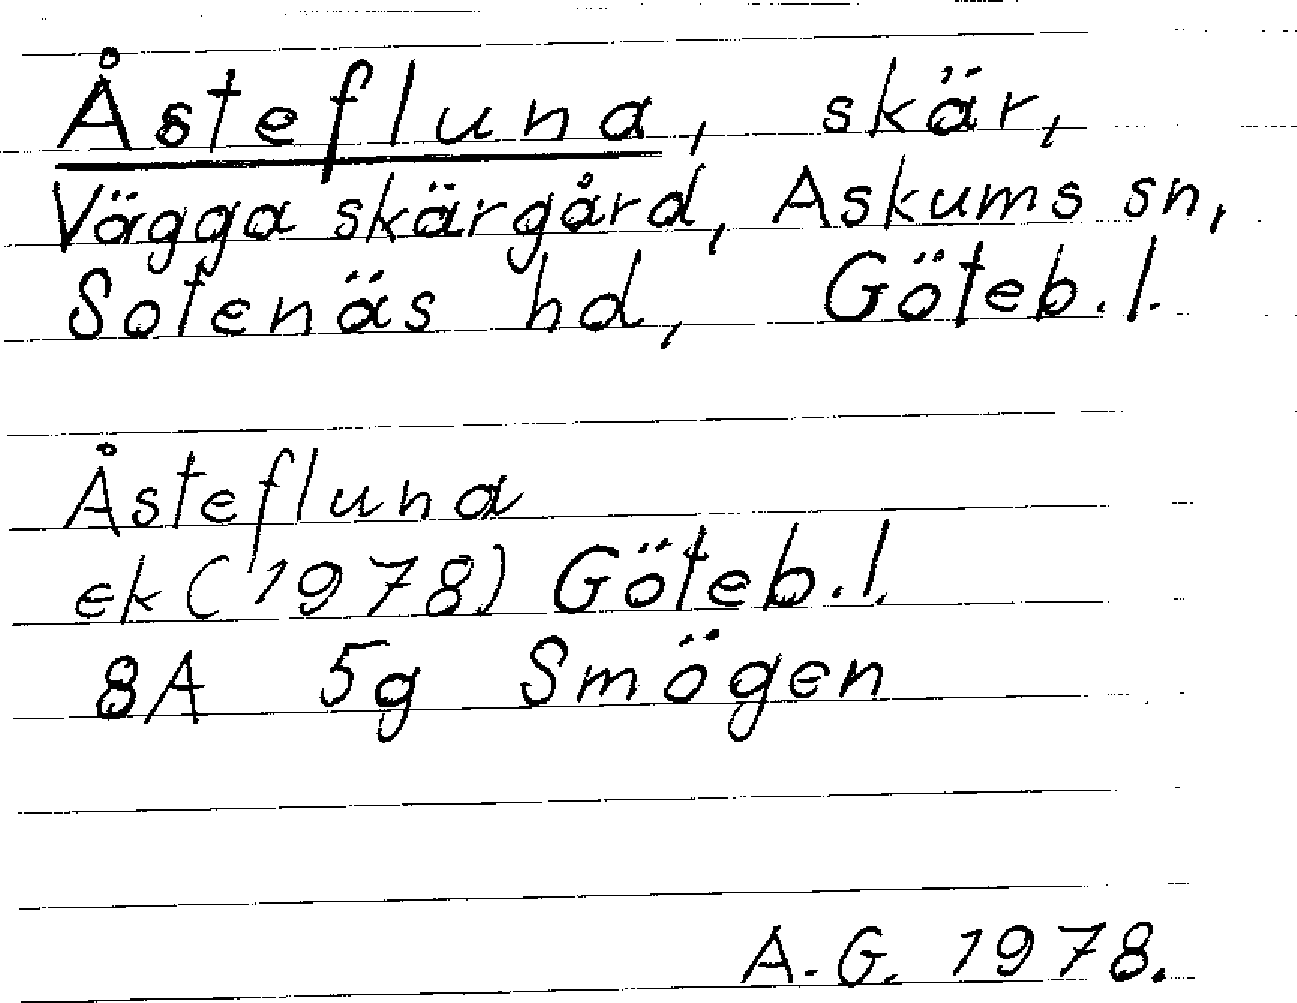 Åstefluna, skär,
Vägga skärgård, Askums sn,
Sotenäs hd, Göteb. l.
Åstefluna
ek (1978) Göteb. l.
8A 5g Smögen
A. G. 1978.